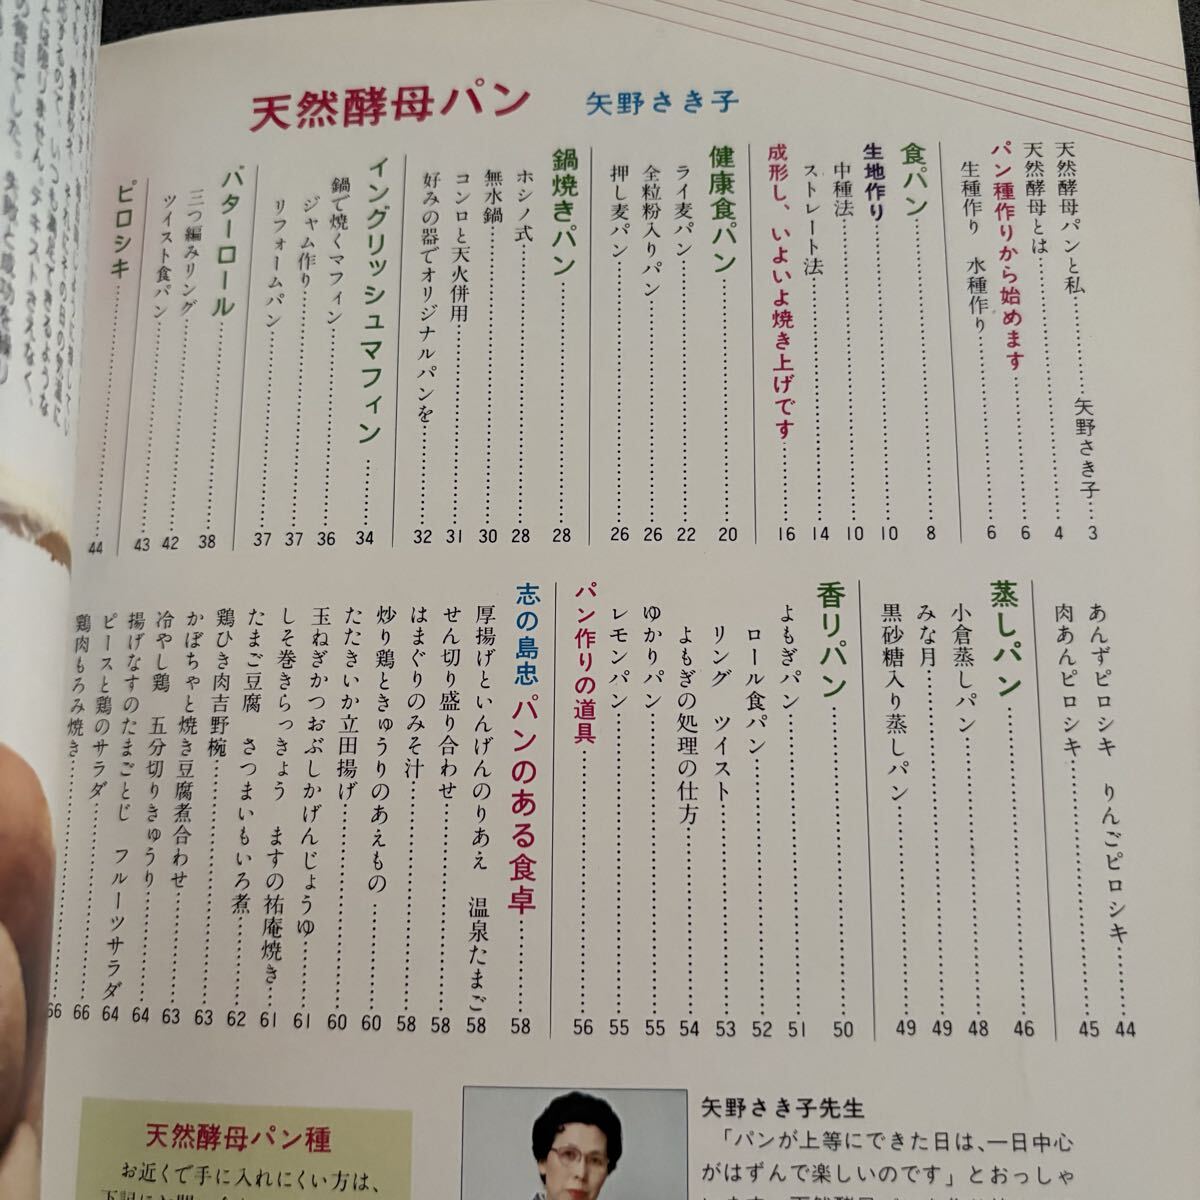 天然酵母パン　矢野さき子
天然酵母パンと私……矢野さき子……3
天然酵母とは……4
パン種作りから始めます……6
生種作り　水種作り……6
食パン……8
生地作り……10
中種法……10
ストレート法……14
成形し、いよいよ焼き上げです……16
健康食パン……20
ライ麦パン……22
全粒粉入りパン……26
押し麦パン……26
鍋焼きパン……28
ホシノ式……28
無水鍋……30
コンロと天火併用……31
好みの器でオリジナルパンを……32
イングリッシュマフィン……34
鍋で焼くマフィン……36
ジャム作り……37
リフォームパン……37
バターロール……38
三つ編みリング……42
ツイスト食パン……43
ピロシキ……44
あんずピロシキ　りんごピロシキ……44
肉あんピロシキ……45
蒸しパン……46
小倉蒸しパン……48
みな月……49
黒砂糖入り蒸しパン……49
香りパン……50
よもぎパン……51
ロール食パン……52
リング　ツイスト……53
よもぎの処理の仕方……54
ゆかりパン……55
レモンパン……55
パン作りの道具……56
志の島忠 パンのある食卓……58
厚揚げといんげんのりあえ　温泉たまご……58
せん切り盛り合わせ……58
はまぐりのみそ汁……58
炒り鶏ときゅうりのあえもの……60
たたきいか立田揚げ……60
玉ねぎかつおぶしかげんじょうゆ……61
しそ巻きらっきょう　ますの祐庵焼き……61
たまご豆腐　さつまいもいろ煮……62
鶏ひき肉吉野椀……63
かぼちゃと焼き豆腐煮合わせ……63
冷やし鶏　五分切りきゅうり……64
揚げなすのたまごとじ　フルーツサラダ……64
ピースと鶏のサラダ……66
鶏肉もろみ焼き……66
天然酵母パン種
お近くで手に入れにくい方は、
矢野さき子先生
「パンが上等にできた日は、一日中心
がはずんで楽しいのです」とおっしゃ